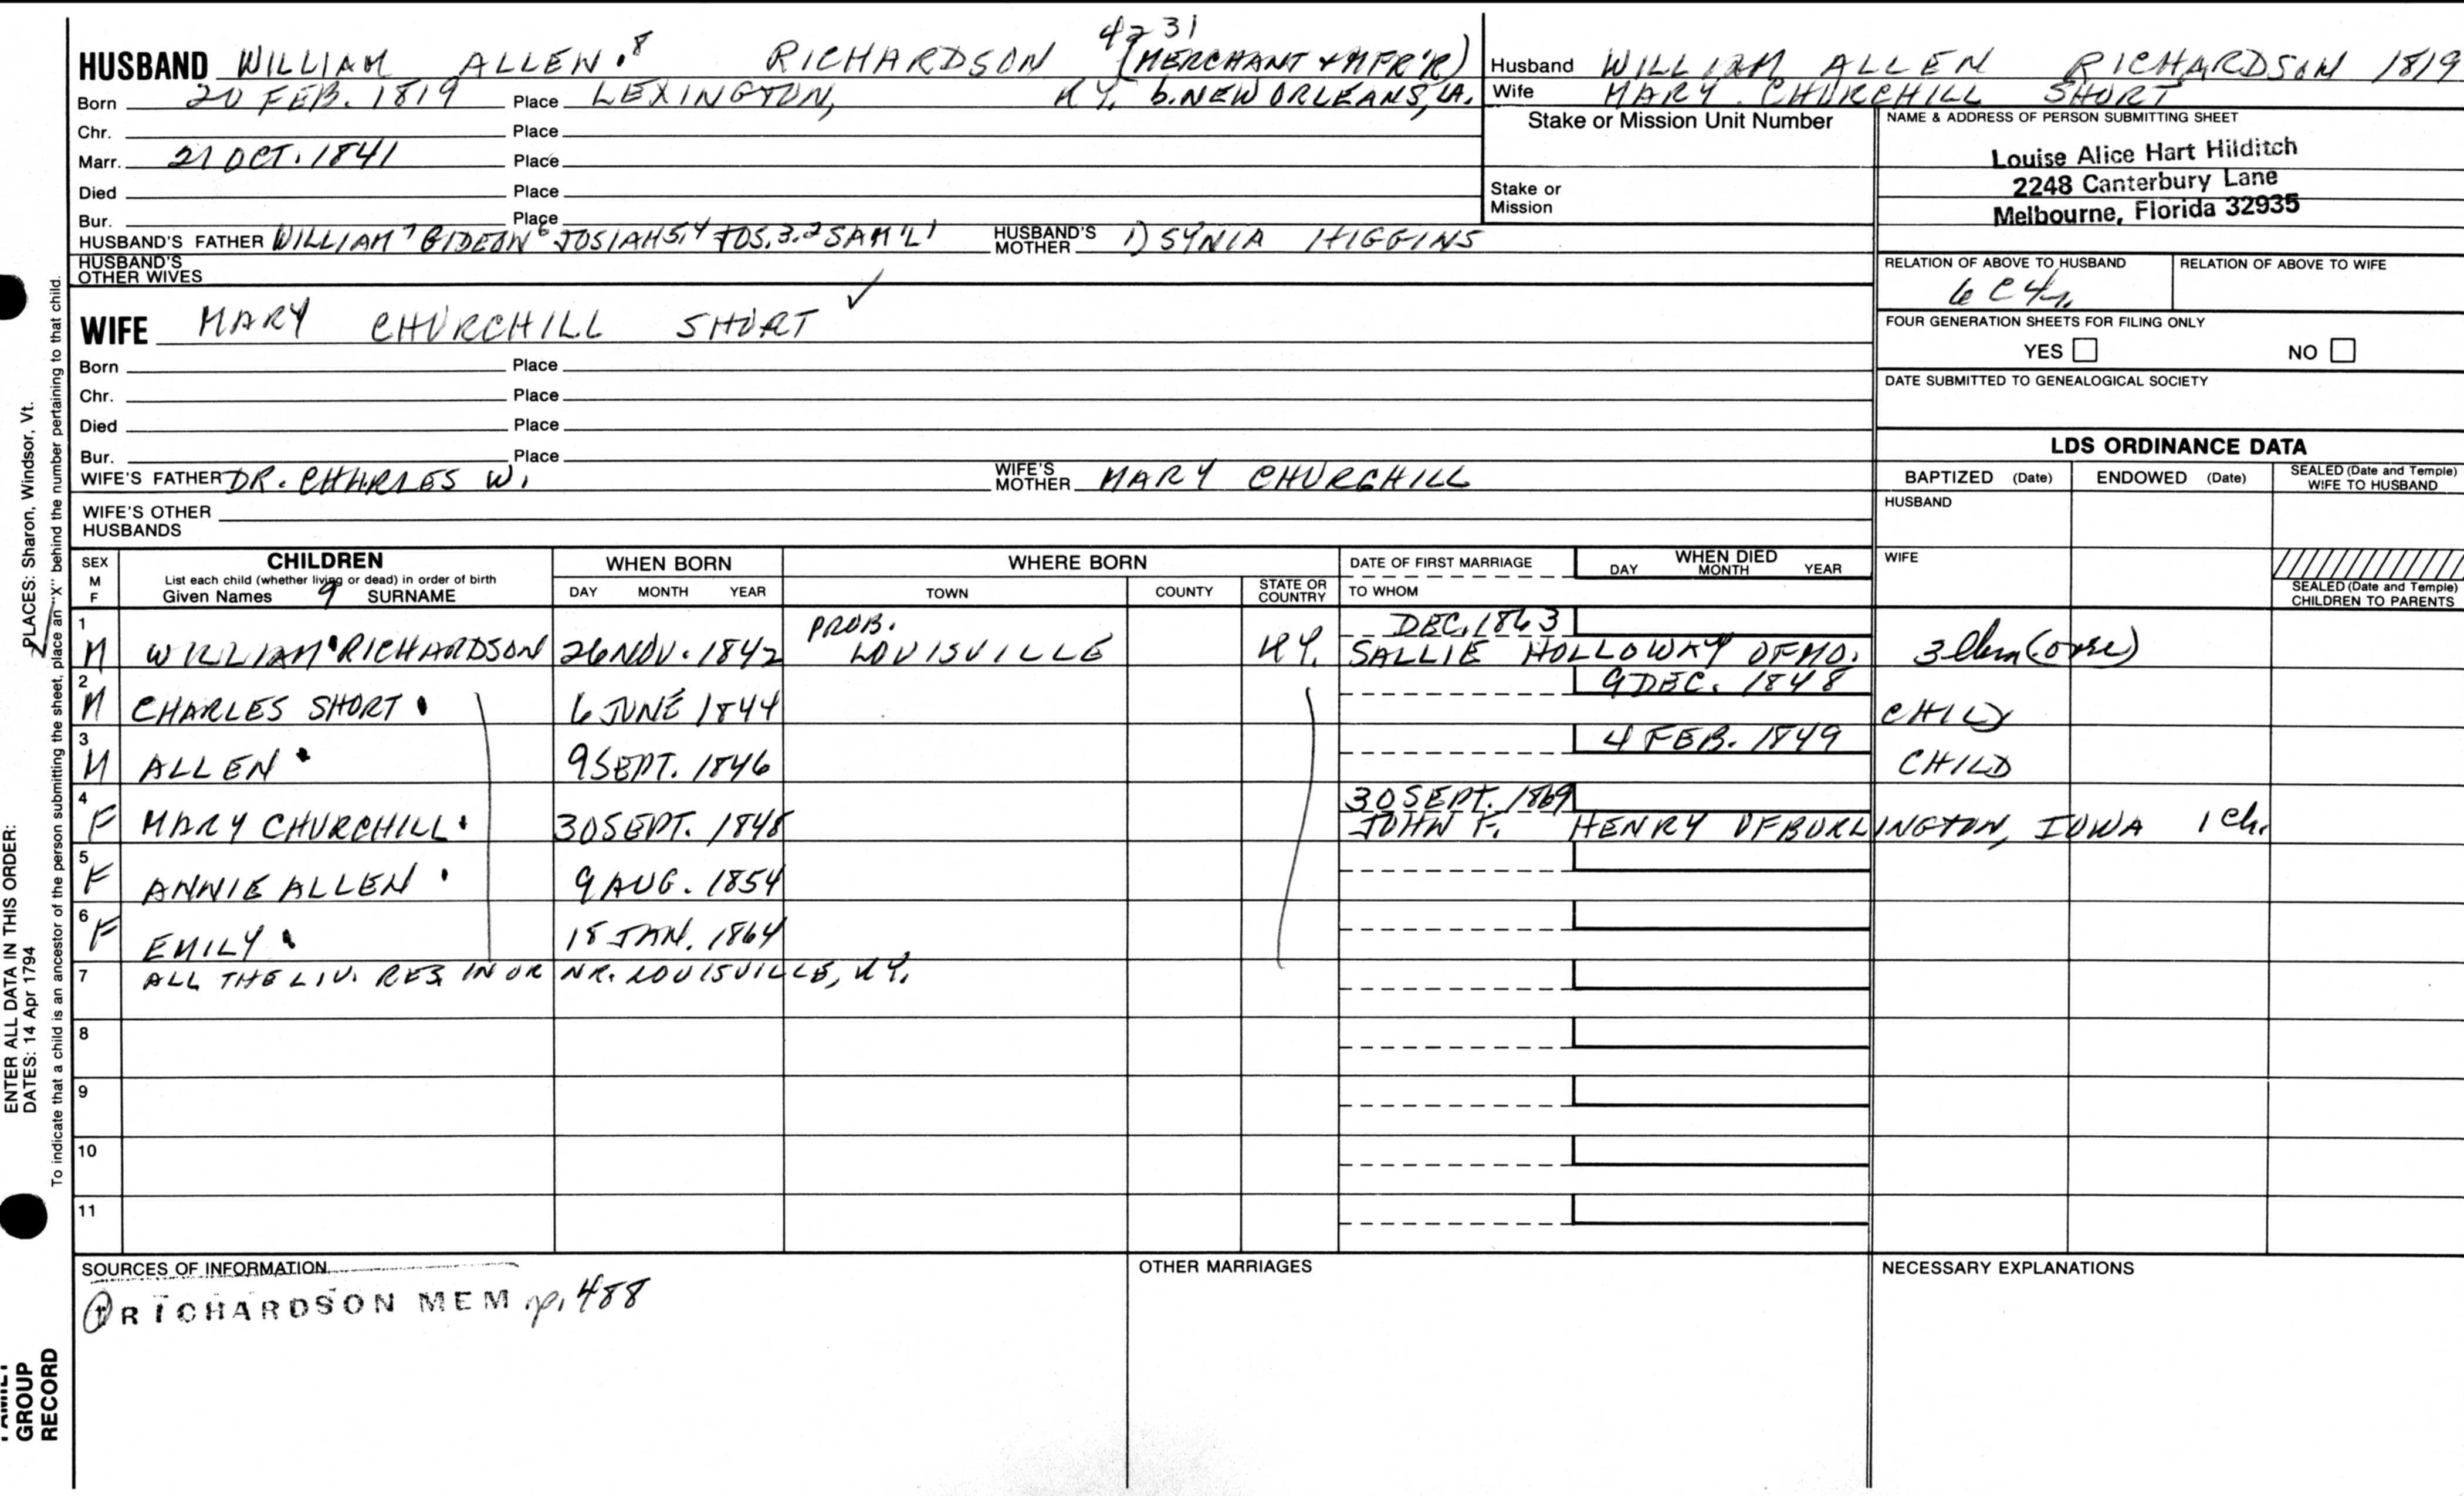 4231
HUSBAND WILLIAM ALLEN.8 RICHARDSON (MERCHANT & MFR'R)
Born 20 FEB. 1819 Place LEXINGTON, KY. b. NEW ORLEANS, LA.
Chr. Place
Marr. 21 OCT. 1841 Place
Died Place
Bur. Place
HUSBAND'S FATHER WILLIAM7 GIDEON6 JOSIAH5,4 JOS.3,2 SAM'L1 HUSBAND'S MOTHER 1) SYNIA HIGGINS
HUSBAND'S OTHER WIVES
Husband WILLIAM ALLEN RICHARDSON 1819
Wife MARY CHURCHILL SHORT
Stake or Mission Unit Number
Stake or Mission
NAME & ADDRESS OF PERSON SUBMITTING SHEET
Louise Alice Hart Hilditch
2248 Canterbury Lane
Melbourne, Florida 32935
RELATION OF ABOVE TO HUSBAND RELATION OF ABOVE TO WIFE
6C4r.
FOUR GENERATION SHEETS FOR FILING ONLY
YES NO
DATE SUBMITTED TO GENEALOGICAL SOCIETY
WIFE MARY CHURCHILL SHORT ✓
Born Place
Chr. Place
Died Place
Bur. Place
WIFE'S FATHER DR. CHARLES W. WIFE'S MOTHER MARY CHURCHILL
WIFE'S OTHER HUSBANDS
LDS ORDINANCE DATA
BAPTIZED (Date) ENDOWED (Date) SEALED (Date and Temple) WIFE TO HUSBAND
HUSBAND
WIFE
SEALED (Date and Temple) CHILDREN TO PARENTS
SEX M F
CHILDREN
List each child (whether living or dead) in order of birth
Given Names 9 SURNAME
WHEN BORN
DAY MONTH YEAR
WHERE BORN
TOWN COUNTY STATE OR COUNTRY
DATE OF FIRST MARRIAGE
TO WHOM
WHEN DIED
DAY MONTH YEAR
1 M WILLIAM RICHARDSON 26 NOV. 1842 PROB. LOUISVILLE KY. DEC. 1863 SALLIE HOLLOWAY OF MO.
2 M CHARLES SHORT 6 JUNE 1844 9 DEC. 1848 CHILD
3 M ALLEN 9 SEPT. 1846 4 FEB. 1849 CHILD
4 F MARY CHURCHILL 30 SEPT. 1848 30 SEPT. 1869 JOHN F. HENRY OF BURLINGTON, IOWA 1 Ch.
5 F ANNIE ALLEN 9 AUG. 1854
6 F EMILY 18 JAN. 1864
7 ALL THE LIV. RES. IN OR NR. LOUISVILLE, KY.
8
9
10
11
SOURCES OF INFORMATION
RICHARDSON MEM p. 488
OTHER MARRIAGES
NECESSARY EXPLANATIONS
ENTER ALL DATA IN THIS ORDER:
DATES: 14 Apr 1794
PLACES: Sharon, Windsor, Vt.
To indicate that a child is an ancestor of the person submitting the sheet, place an "X" behind the number pertaining to that child.
FAMILY GROUP RECORD